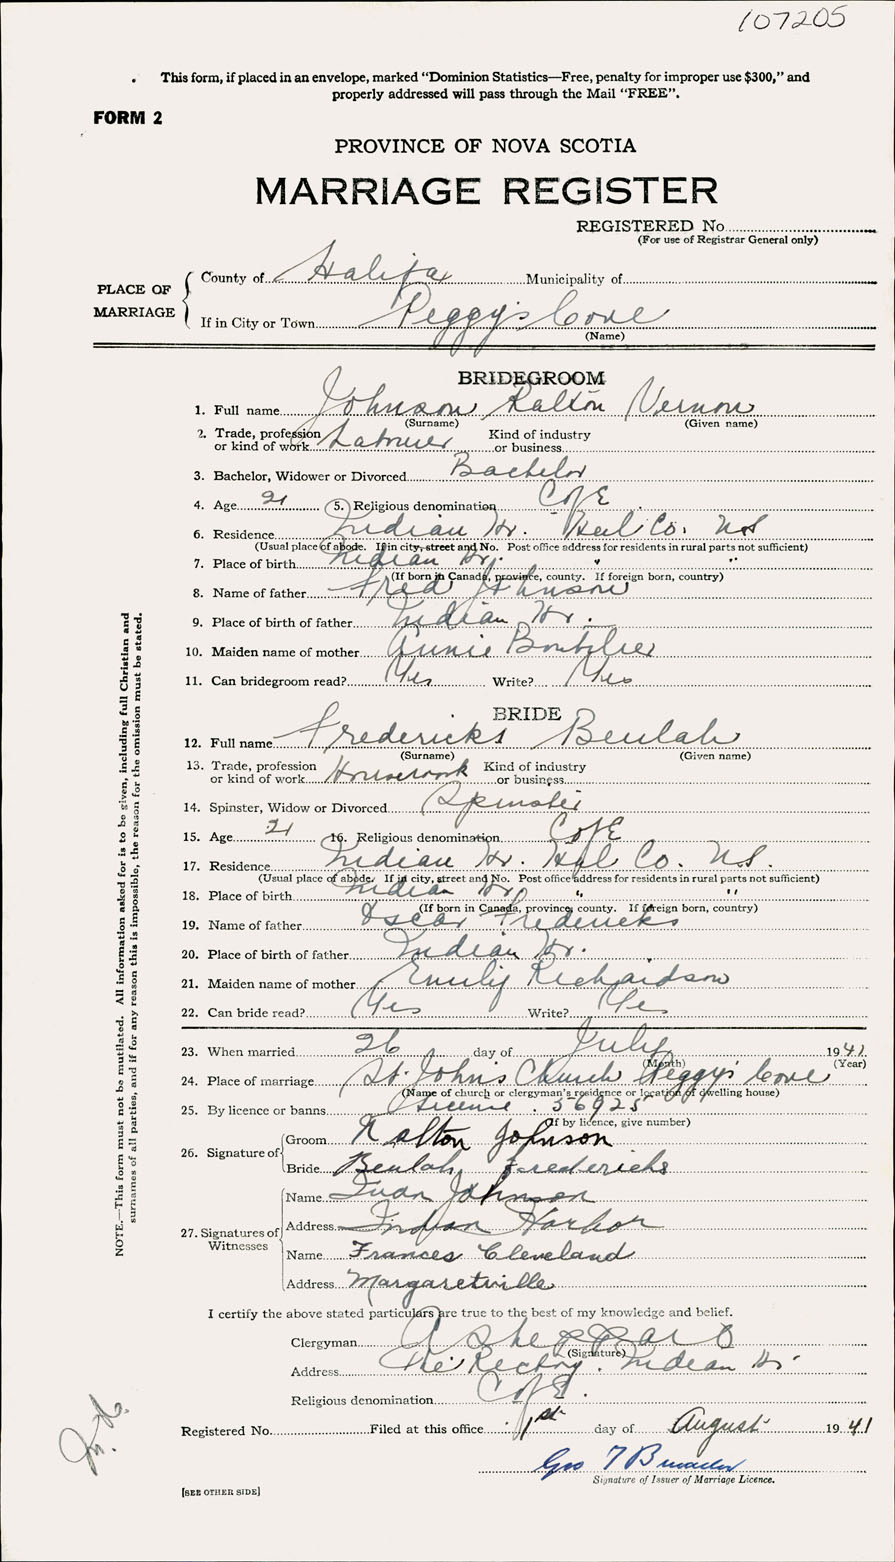 107205
This form, if placed in an envelope, marked “Dominion Statistics—Free, penalty for improper use $300,” and
properly addressed will pass through the Mail “FREE”.
FORM 2
PROVINCE OF NOVA SCOTIA
MARRIAGE REGISTER
REGISTERED No.
(For use of Registrar General only)
PLACE OF MARRIAGE
County of Halifax Municipality of
If in City or Town Peggy's Cove
(Name)
BRIDEGROOM
1. Full name Johnson Ralton Vernon
(Surname) (Given name)
2. Trade, profession or kind of work Labourer Kind of industry or business
3. Bachelor, Widower or Divorced Bachelor
4. Age 21 5. Religious denomination C of E
6. Residence Indian Hr. Hal Co. NS
(Usual place of abode. If in city, street and No. Post office address for residents in rural parts not sufficient)
7. Place of birth Indian Hr. " "
(If born in Canada, province, county. If foreign born, country)
8. Name of father Fred Johnson
9. Place of birth of father Indian Hr.
10. Maiden name of mother Annie Boutilier
11. Can bridegroom read? Yes Write? Yes
BRIDE
12. Full name Fredericks Beulah
(Surname) (Given name)
13. Trade, profession or kind of work Housework Kind of industry or business
14. Spinster, Widow or Divorced Spinster
15. Age 21 16. Religious denomination C of E
17. Residence Indian Hr. Hal Co. N.S.
(Usual place of abode. If in city, street and No. Post office address for residents in rural parts not sufficient)
18. Place of birth Indian Hr. " "
(If born in Canada, province, county. If foreign born, country)
19. Name of father Oscar Fredericks
20. Place of birth of father Indian Hr.
21. Maiden name of mother Emily Richardson
22. Can bride read? Yes Write? Yes
23. When married 26 day of July 1941
(Month) (Year)
24. Place of marriage St. John's Church Peggy's Cove
(Name of church or clergyman's residence or location of dwelling house)
25. By licence or banns License 56925
(If by licence, give number)
26. Signature of Groom Ralton Johnson
Bride Beulah Fredericks
27. Signatures of Witnesses
Name Ivan Johnson
Address Indian Harbor
Name Frances Cleveland
Address Margaretville
I certify the above stated particulars are true to the best of my knowledge and belief.
Clergyman A Sheppard
(Signature)
Address The Rectory. Indian Hr.
Religious denomination C of E.
Registered No. Filed at this office 1st day of August 1941
Geo T
Signature of Issuer of Marriage Licence.
[SEE OTHER SIDE]
NOTE.—This form must not be mutilated. All information asked for is to be given, including full Christian and
surnames of all parties, and if for any reason this is impossible, the reason for the omission must be stated.